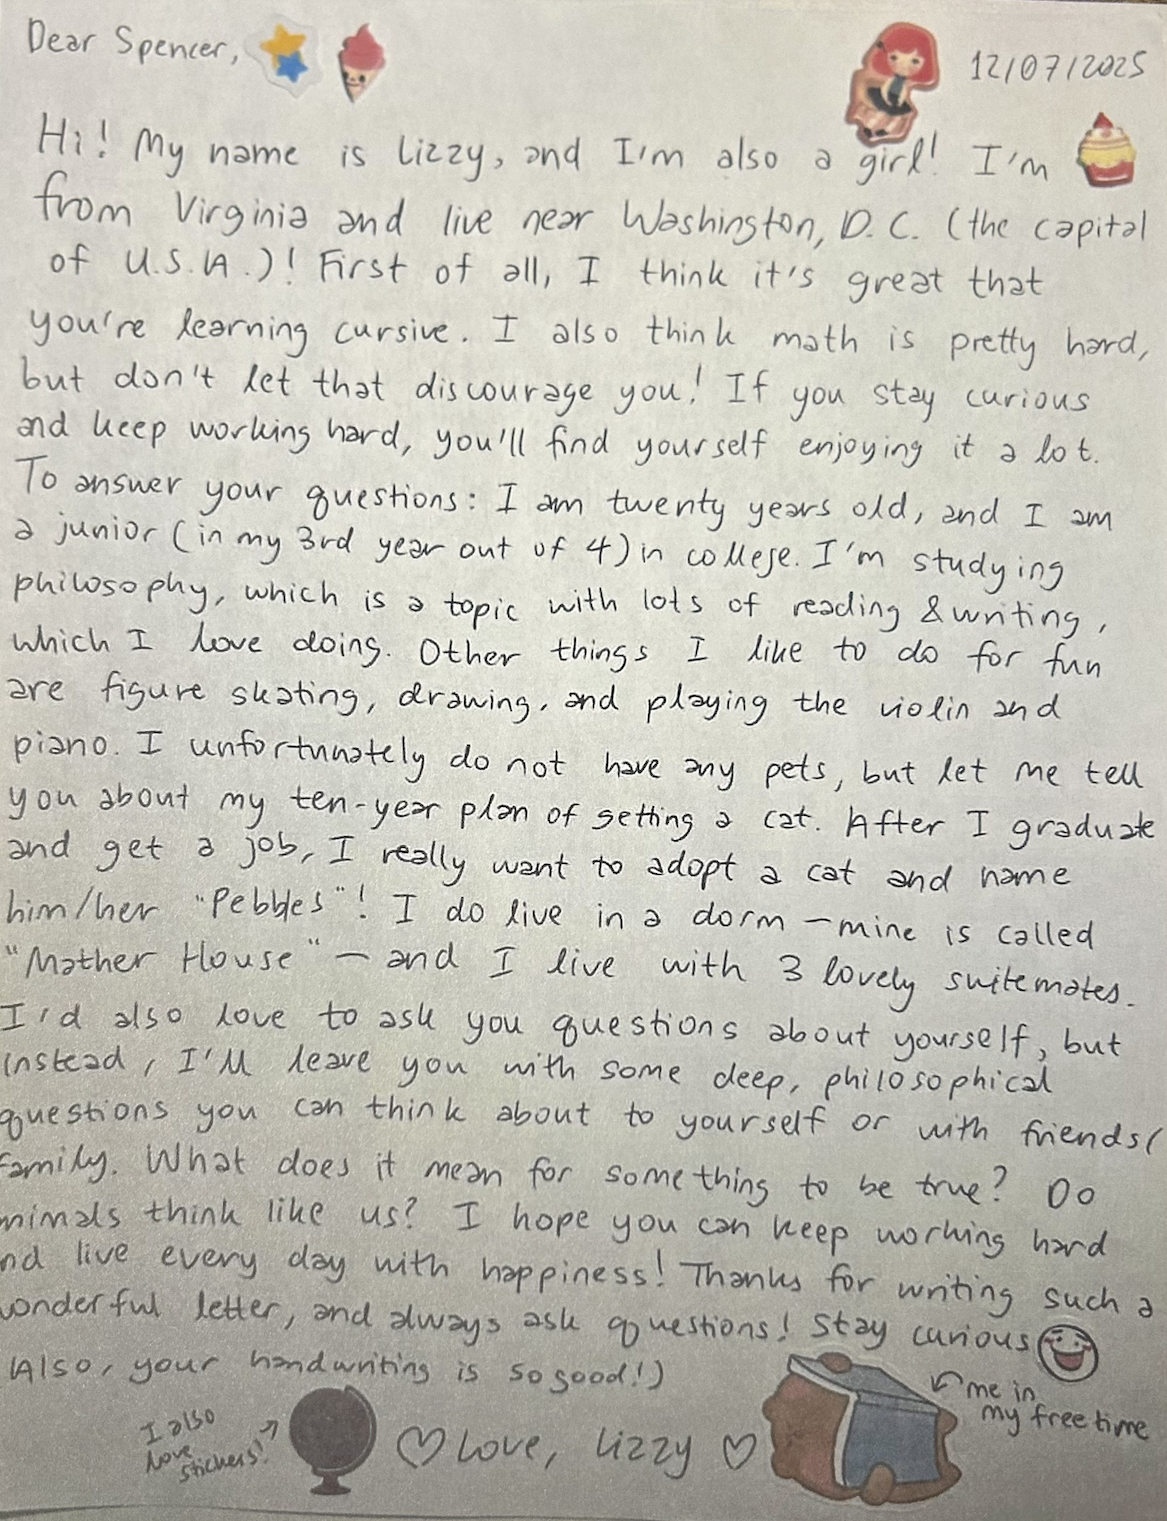 Dear Spencer,
12/07/2025
Hi! My name is Lizzy, and I'm also a girl! I'm
from Virginia and live near Washington, D.C. (the capital
of U.S.A.)! First of all, I think it's great that
you're learning cursive. I also think math is pretty hard,
but don't let that discourage you! If you stay curious
and keep working hard, you'll find yourself enjoying it a lot.
To answer your questions: I am twenty years old, and I am
a junior (in my 3rd year out of 4) in college. I'm studying
philosophy, which is a topic with lots of reading & writing,
which I love doing. Other things I like to do for fun
are figure skating, drawing, and playing the violin and
piano. I unfortunately do not have any pets, but let me tell
you about my ten-year plan of getting a cat. After I graduate
and get a job, I really want to adopt a cat and name
him/her "Pebbles"! I do live in a dorm – mine is called
"Mather House" – and I live with 3 lovely suitemates.
I'd also love to ask you questions about yourself, but
instead, I'll leave you with some deep, philosophical
questions you can think about to yourself or with friends/
family. What does it mean for something to be true? Do
nimals think like us? I hope you can keep working hard
nd live every day with happiness! Thanks for writing such a
onderful letter, and always ask questions! Stay curious
Also, your handwriting is so good!)
me in
my free time
I also
love
stickers!
Love, Lizzy